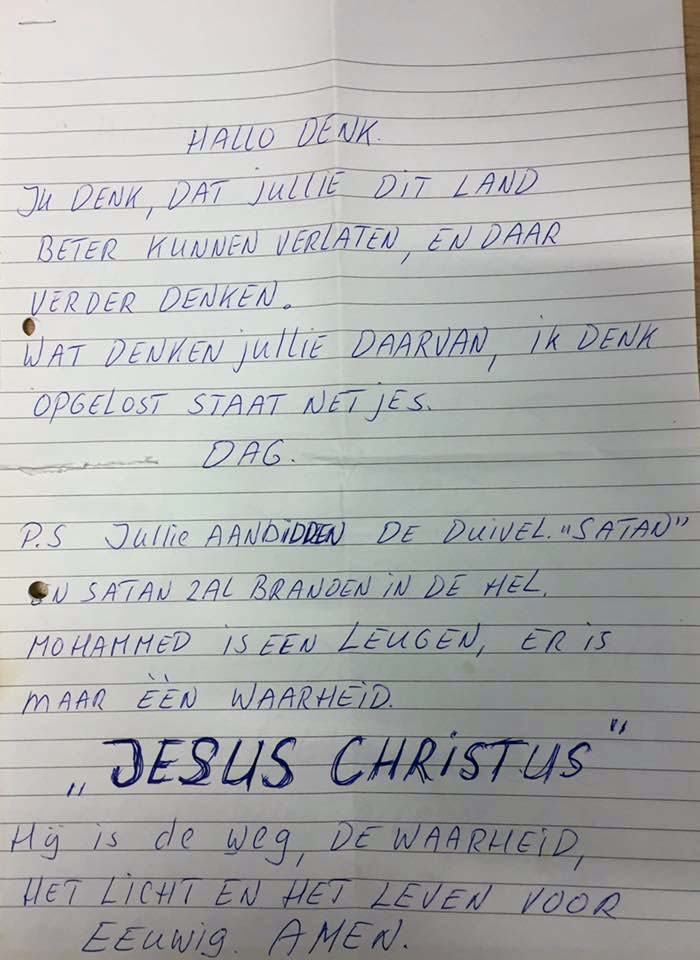 HALLO DENK.
IK DENK, DAT JULLIE DIT LAND
BETER KUNNEN VERLATEN, EN DAAR
VERDER DENKEN.
WAT DENKEN JULLIE DAARVAN, IK DENK
OPGELOST STAAT NETJES.
DAG.
P.S JULLIE AANBIDDEN DE DUIVEL. "SATAN"
EN SATAN ZAL BRANDEN IN DE HEL.
MOHAMMED IS EEN LEUGEN, ER IS
MAAR ÈÈN WAARHEID.
„JESUS CHRISTUS"
Hij is de weg, DE WAARHEID,
HET LICHT EN HET LEVEN VOOR
EEUWIG. AMEN.